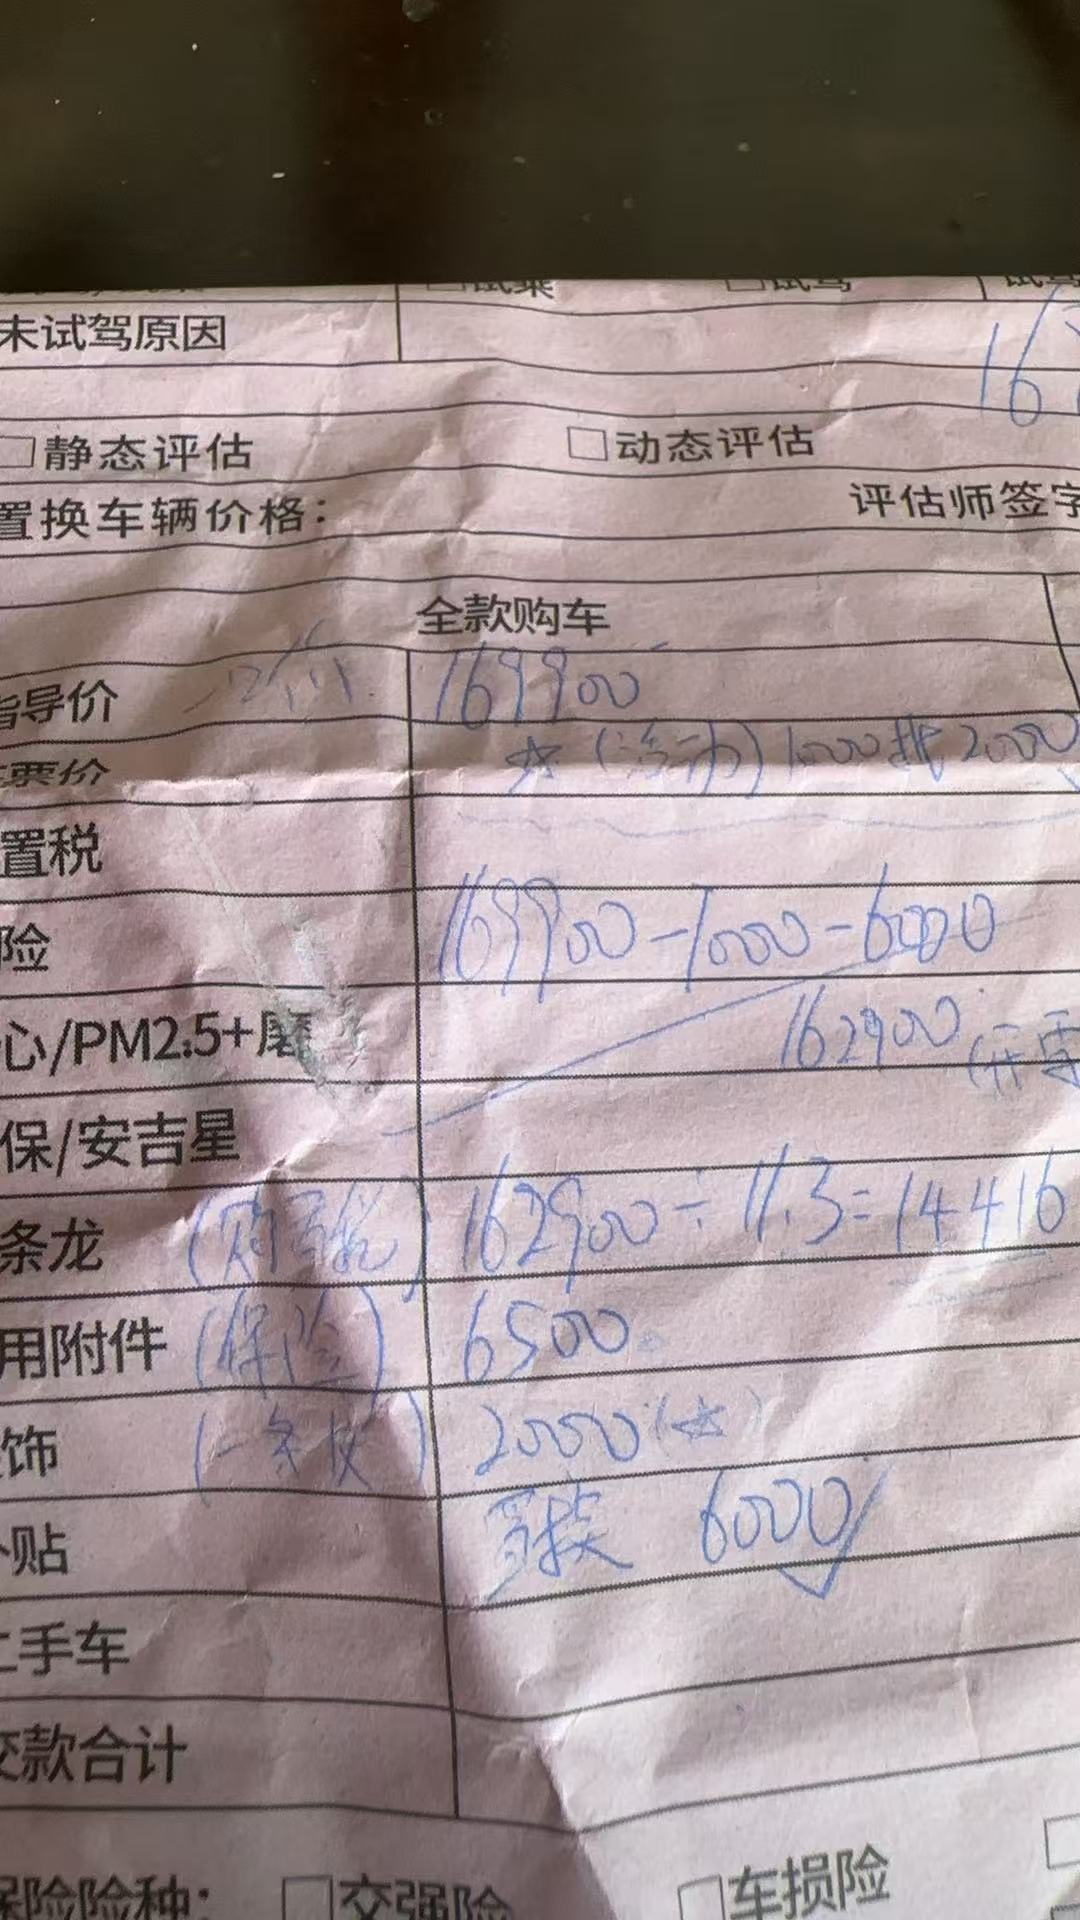 试乘 试驾 试驾
未试驾原因
16
□静态评估 □动态评估
置换车辆价格：
评估师签字
全款购车
指导价 169900
票价 (活动) 1000抵2000
置税
险 169900-1000-6000
心/PM2.5+磨 162900 (开票
保/安吉星
条龙 (购置税) 162900÷11.3=14416
用附件 (保险) 6500
饰 (一条龙) 2000
补贴 置换 6000
二手车
交款合计
保险险种： □交强险 □车损险